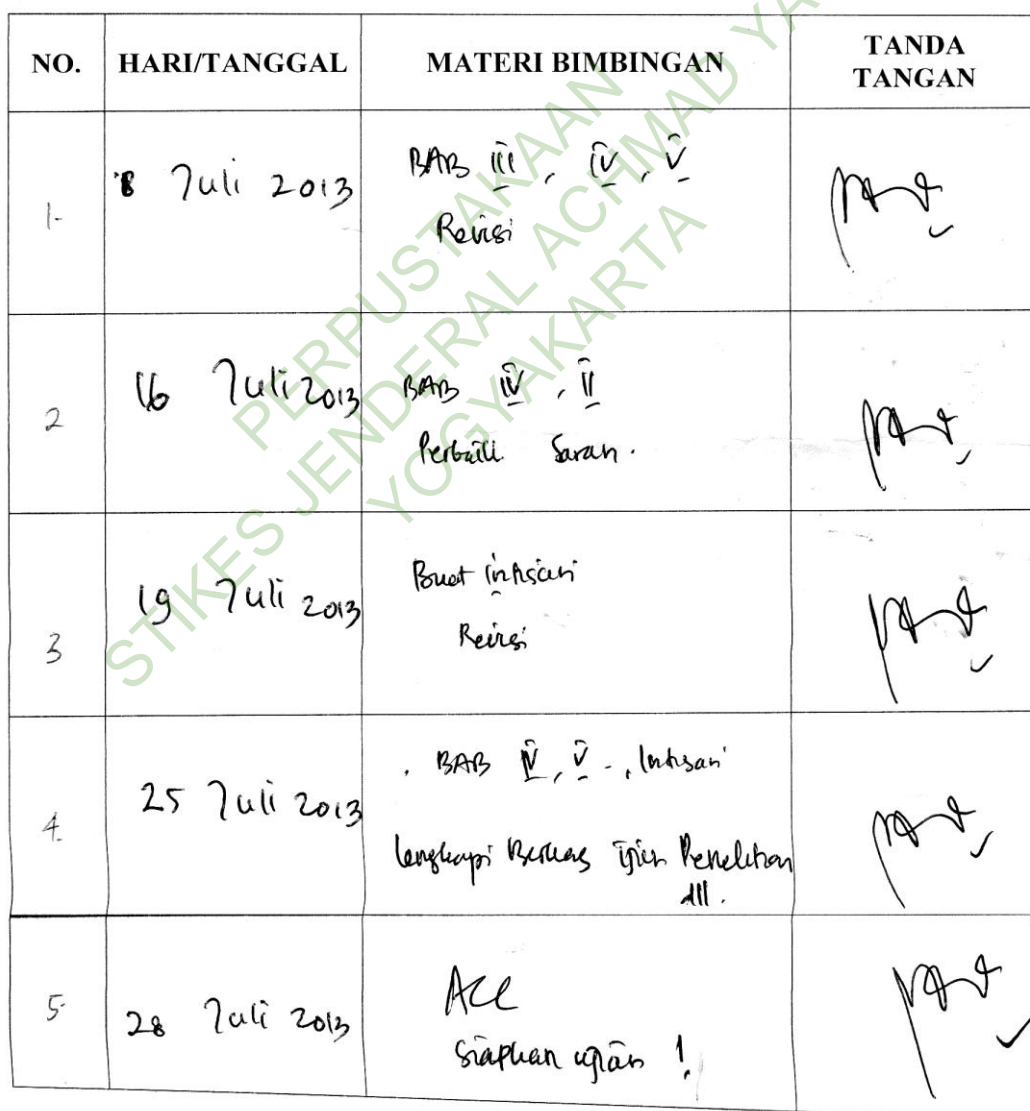 NO. HARI/TANGGAL MATERI BIMBINGAN TANDA TANGAN
1. 8 Juli 2013 BAB III, IV, V
Revisi
2 16 Juli 2013 BAB IV, II
Perbaiki Saran.
3 19 Juli 2013 Buat intisari
Revisi
4. 25 Juli 2013 . BAB IV, V -, Intisari
lengkapi Berkas ijin Penelitian
dll.
5. 28 Juli 2013 ACC
Siapkan ujian !
PERPUSTAKAAN
STIKES JENDERAL ACHMAD YA
YOGYAKARTA